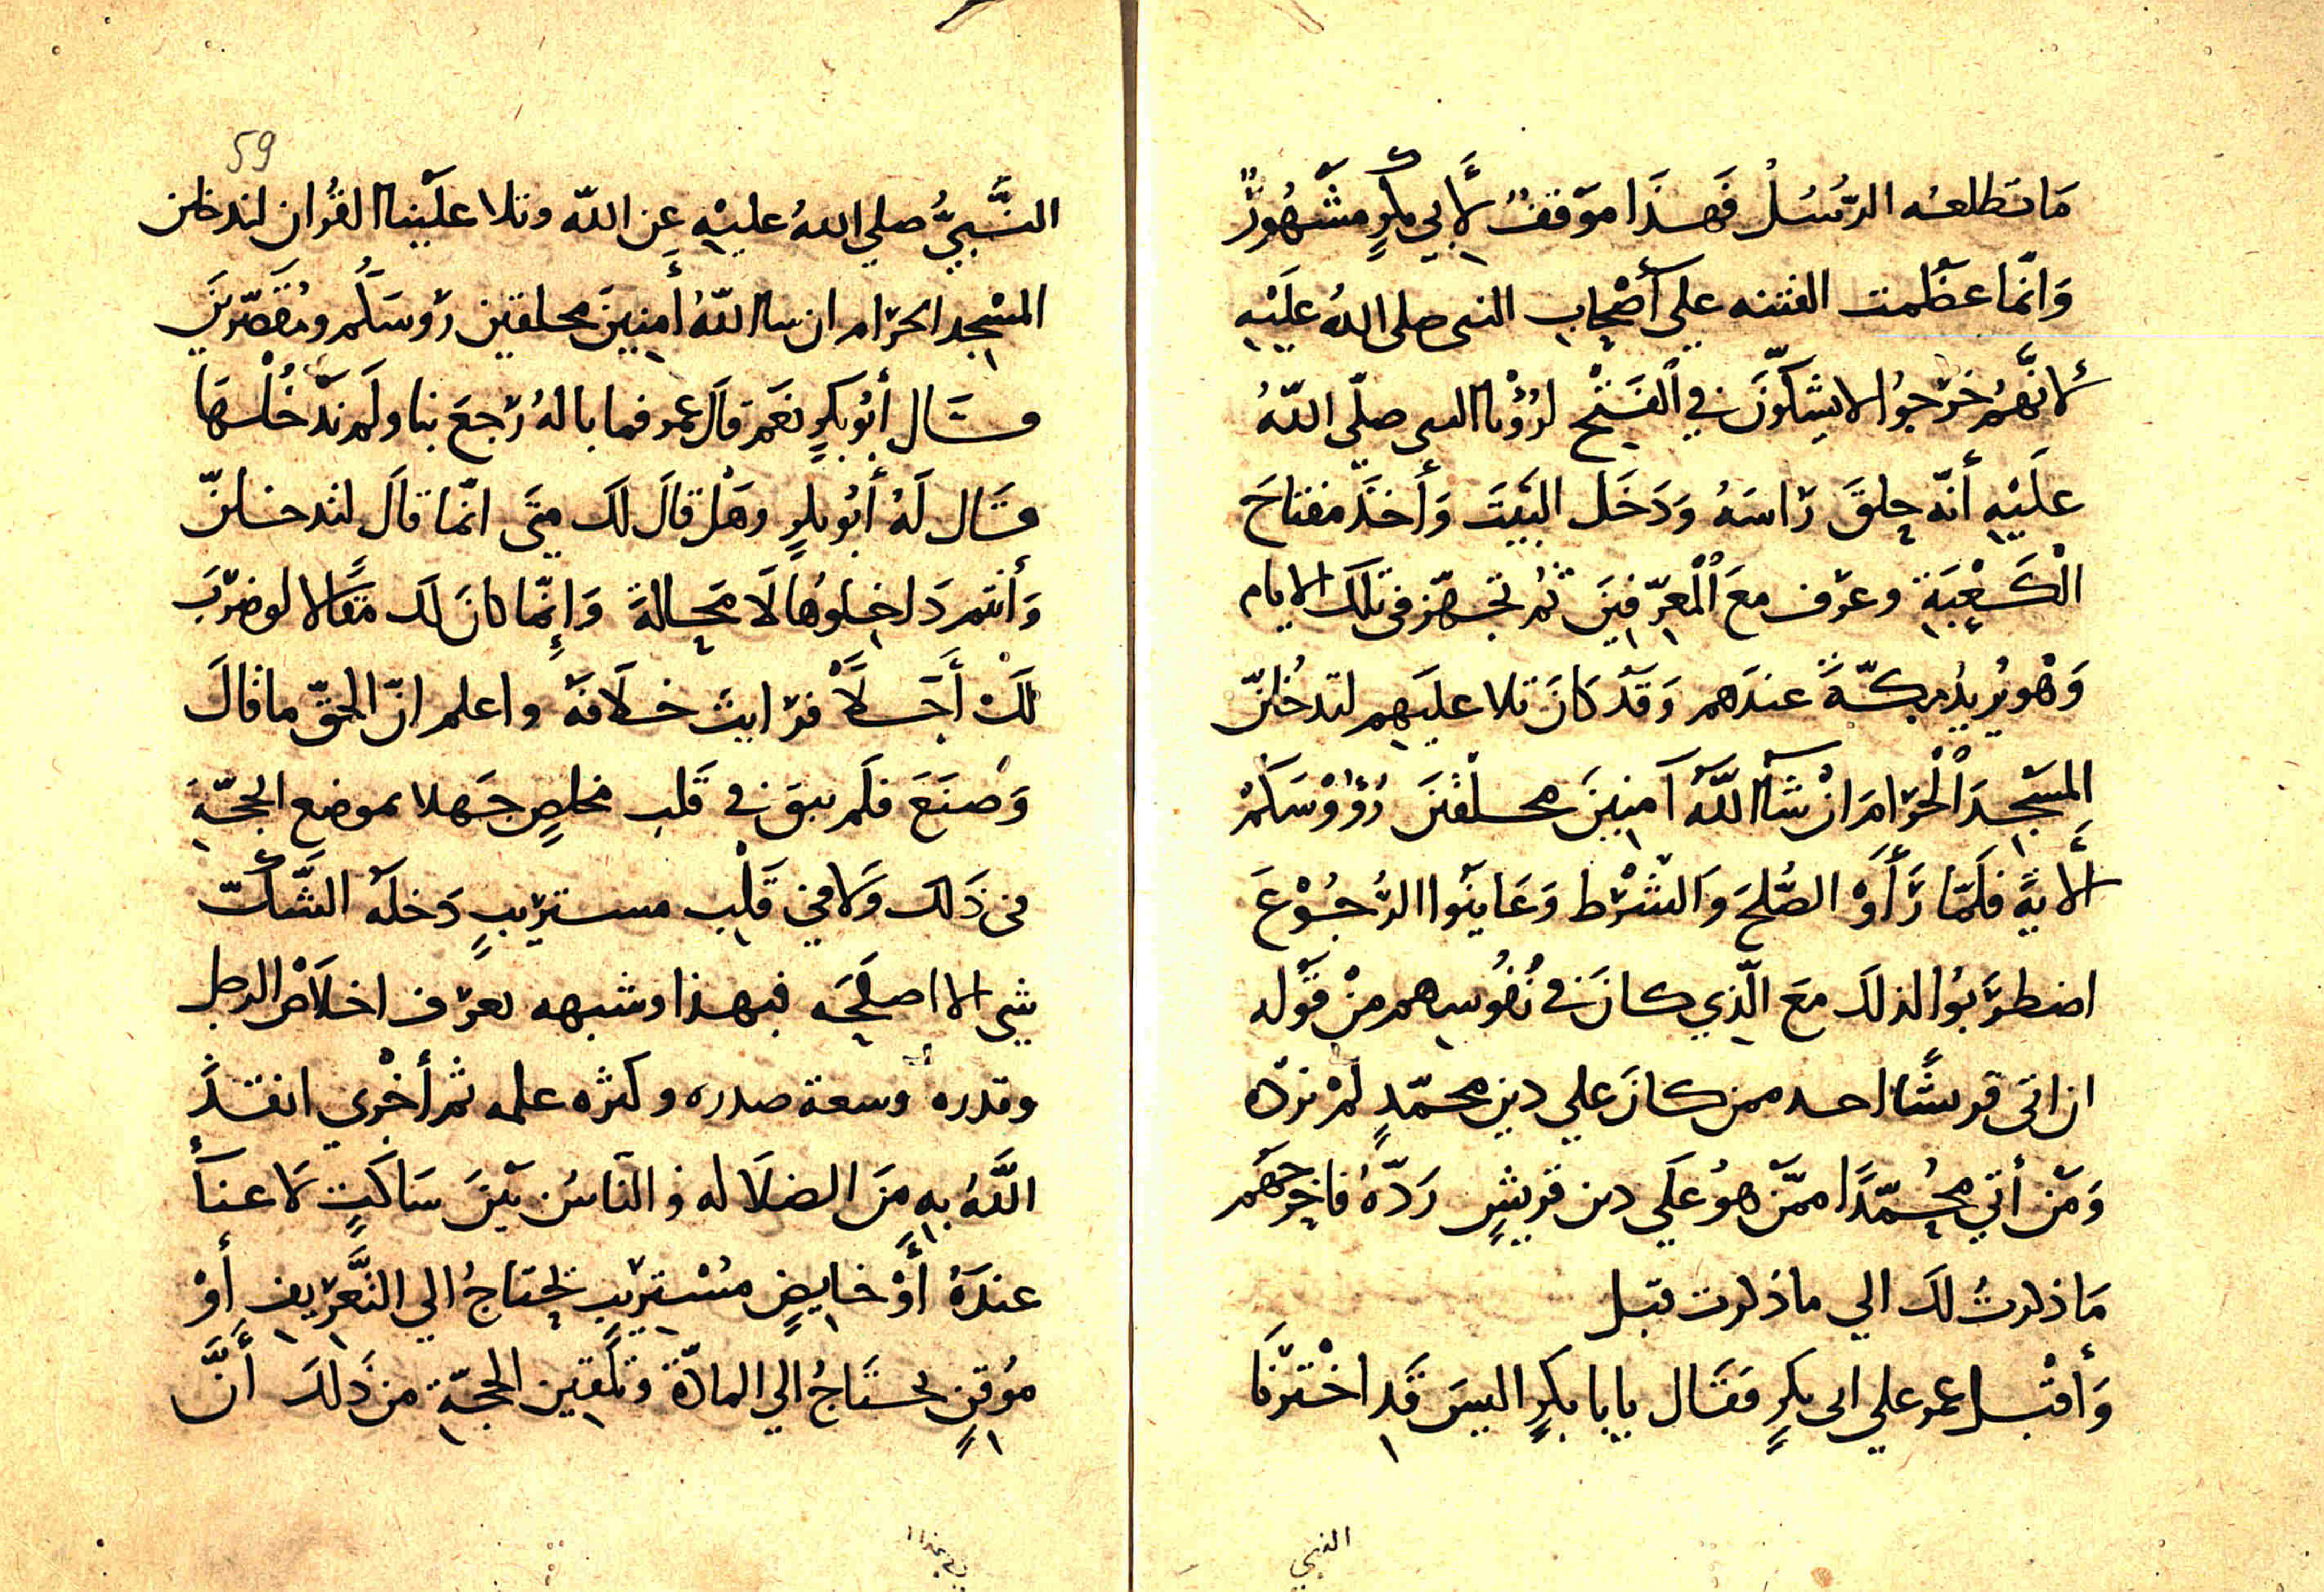 مَا تَطلعه الرُّسُلُ فَهذَا مَوْقفٌ لأَبي بكرٍ مشْهُورٌ
وَانّما عظُمت الفتنه علي أصْحابِ النبى صلى اللهُ عليْهِ
لأنَّهُمْ خرَجوُا لا يشكوّنَ في الفَتْح لرُؤْيا النبى صلّى اللّهُ
عَلَيْهِ أنّه حلقَ رَاسَهُ وَدَخَل البَيْتَ وَأَخذَ مفتاحَ
الْكَعْبَةِ وعرّف معَ الْمعرّفينَ ثم تجهّز فى تلكَ الايام
وَهْو يُريدُ مكّةَ عندَهم وَقَدْ كَانَ تلا عليَهِم لتدخُلنّ
المسْجِدَ الْحرَامَ انْ شَآ اللّهُ آمنِينَ محلقينَ رُؤُوْسَكمْ
ألايةَ فلَمّا رَأَوَْا الصُّلحَ وَالشَّرْط وَعَاينَوا الرُّجُوْعَ
اضطرَبُوا لذلكَ معَ الّذي كانَ في نُفُوسِهم منْ قَوله
ان اتى قريشًا احد ممن كانَ علي دينِ محمّدٍ لمْ نردّه
وَمَن أتي مُحمّدًا ممّن هوُ علَي دين قريشٍ رَدّهُ فاخرجَهم
مَا ذكرتُ لكَ الي ما ذكرت قبل
وَأقبْل عمر علي ابى بكرٍ فقَال يابا بكرٍ اليسَ قَد اخْبَرَنَا
النبي
59
النَّبيُّ صلي اللهُ عليْهِ عَن اللّه وتلا علَيْنا القُرْان لتدخلن
المسْجد الحرَام ان شا اللّهُ أَمنِينَ محلقين رؤسَكُم ومُقَصّرينَ
فقَال أبُو بكرٍ نعَم قالَ عمر فما بالهُ رَجعَ بنا ولَم ندْخُلْهَا
فقَال لَهُ أبُو بكرٍ وهَلْ قالَ لكَ متَى انّما قالَ لتدخلنّ
وَأنتم دَاخلوُها لَا محَالةَ وَإنّما كانَ لكَ مقَالا لو ضرَبَ
لكَ أَجَلاً فرَايتَ خلَافهَ واعلم انّ الحقّ ما قالَ
وَصنَعَ فلَم يبق في قَلب مخلصٍ جَهلا بموضع الحجّةِ
في ذَلكَ وَلا في قَلْبِ مستريبٍ دَخلَهُ الشَّكّ
شي الا اصلحَه فبهذا وشبهه يعرَف اخلَاص الرجل
وقدره وسعة صدره وكثره علمه ثم أخْري انقذَ
اللّهُ بهِ منَ الضلَاله والناسُ بَيْنَ سَاكتٍ لا غنآَ
عندَهُ أَوْ خايضٍ مُسْتريبِ يحتاجُ الي التَّعْريفِ أوْ
موُقنٍ يحتَاجُ الي المادّةِ وتلْقينِ الحجّةِ من ذَلكَ أنَّ